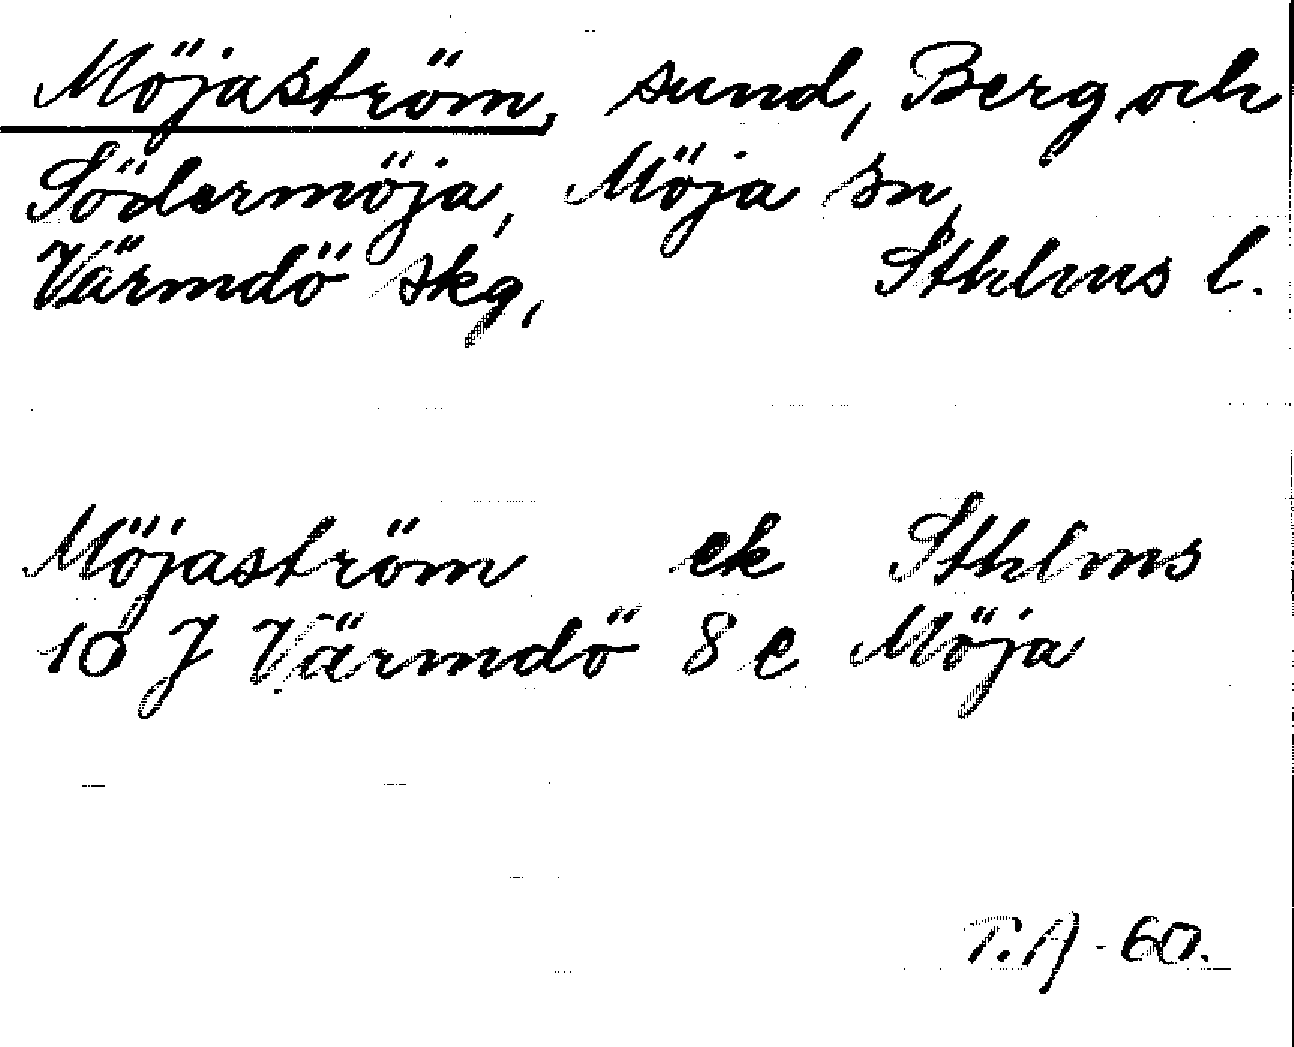 Möjaström, sund, Berg och
Södermöja, Möja sn,
Värmdö skg, Sthlms l.
Möjaström ek Sthlms
10 J Värmdö 8 e Möja
T.A-60.